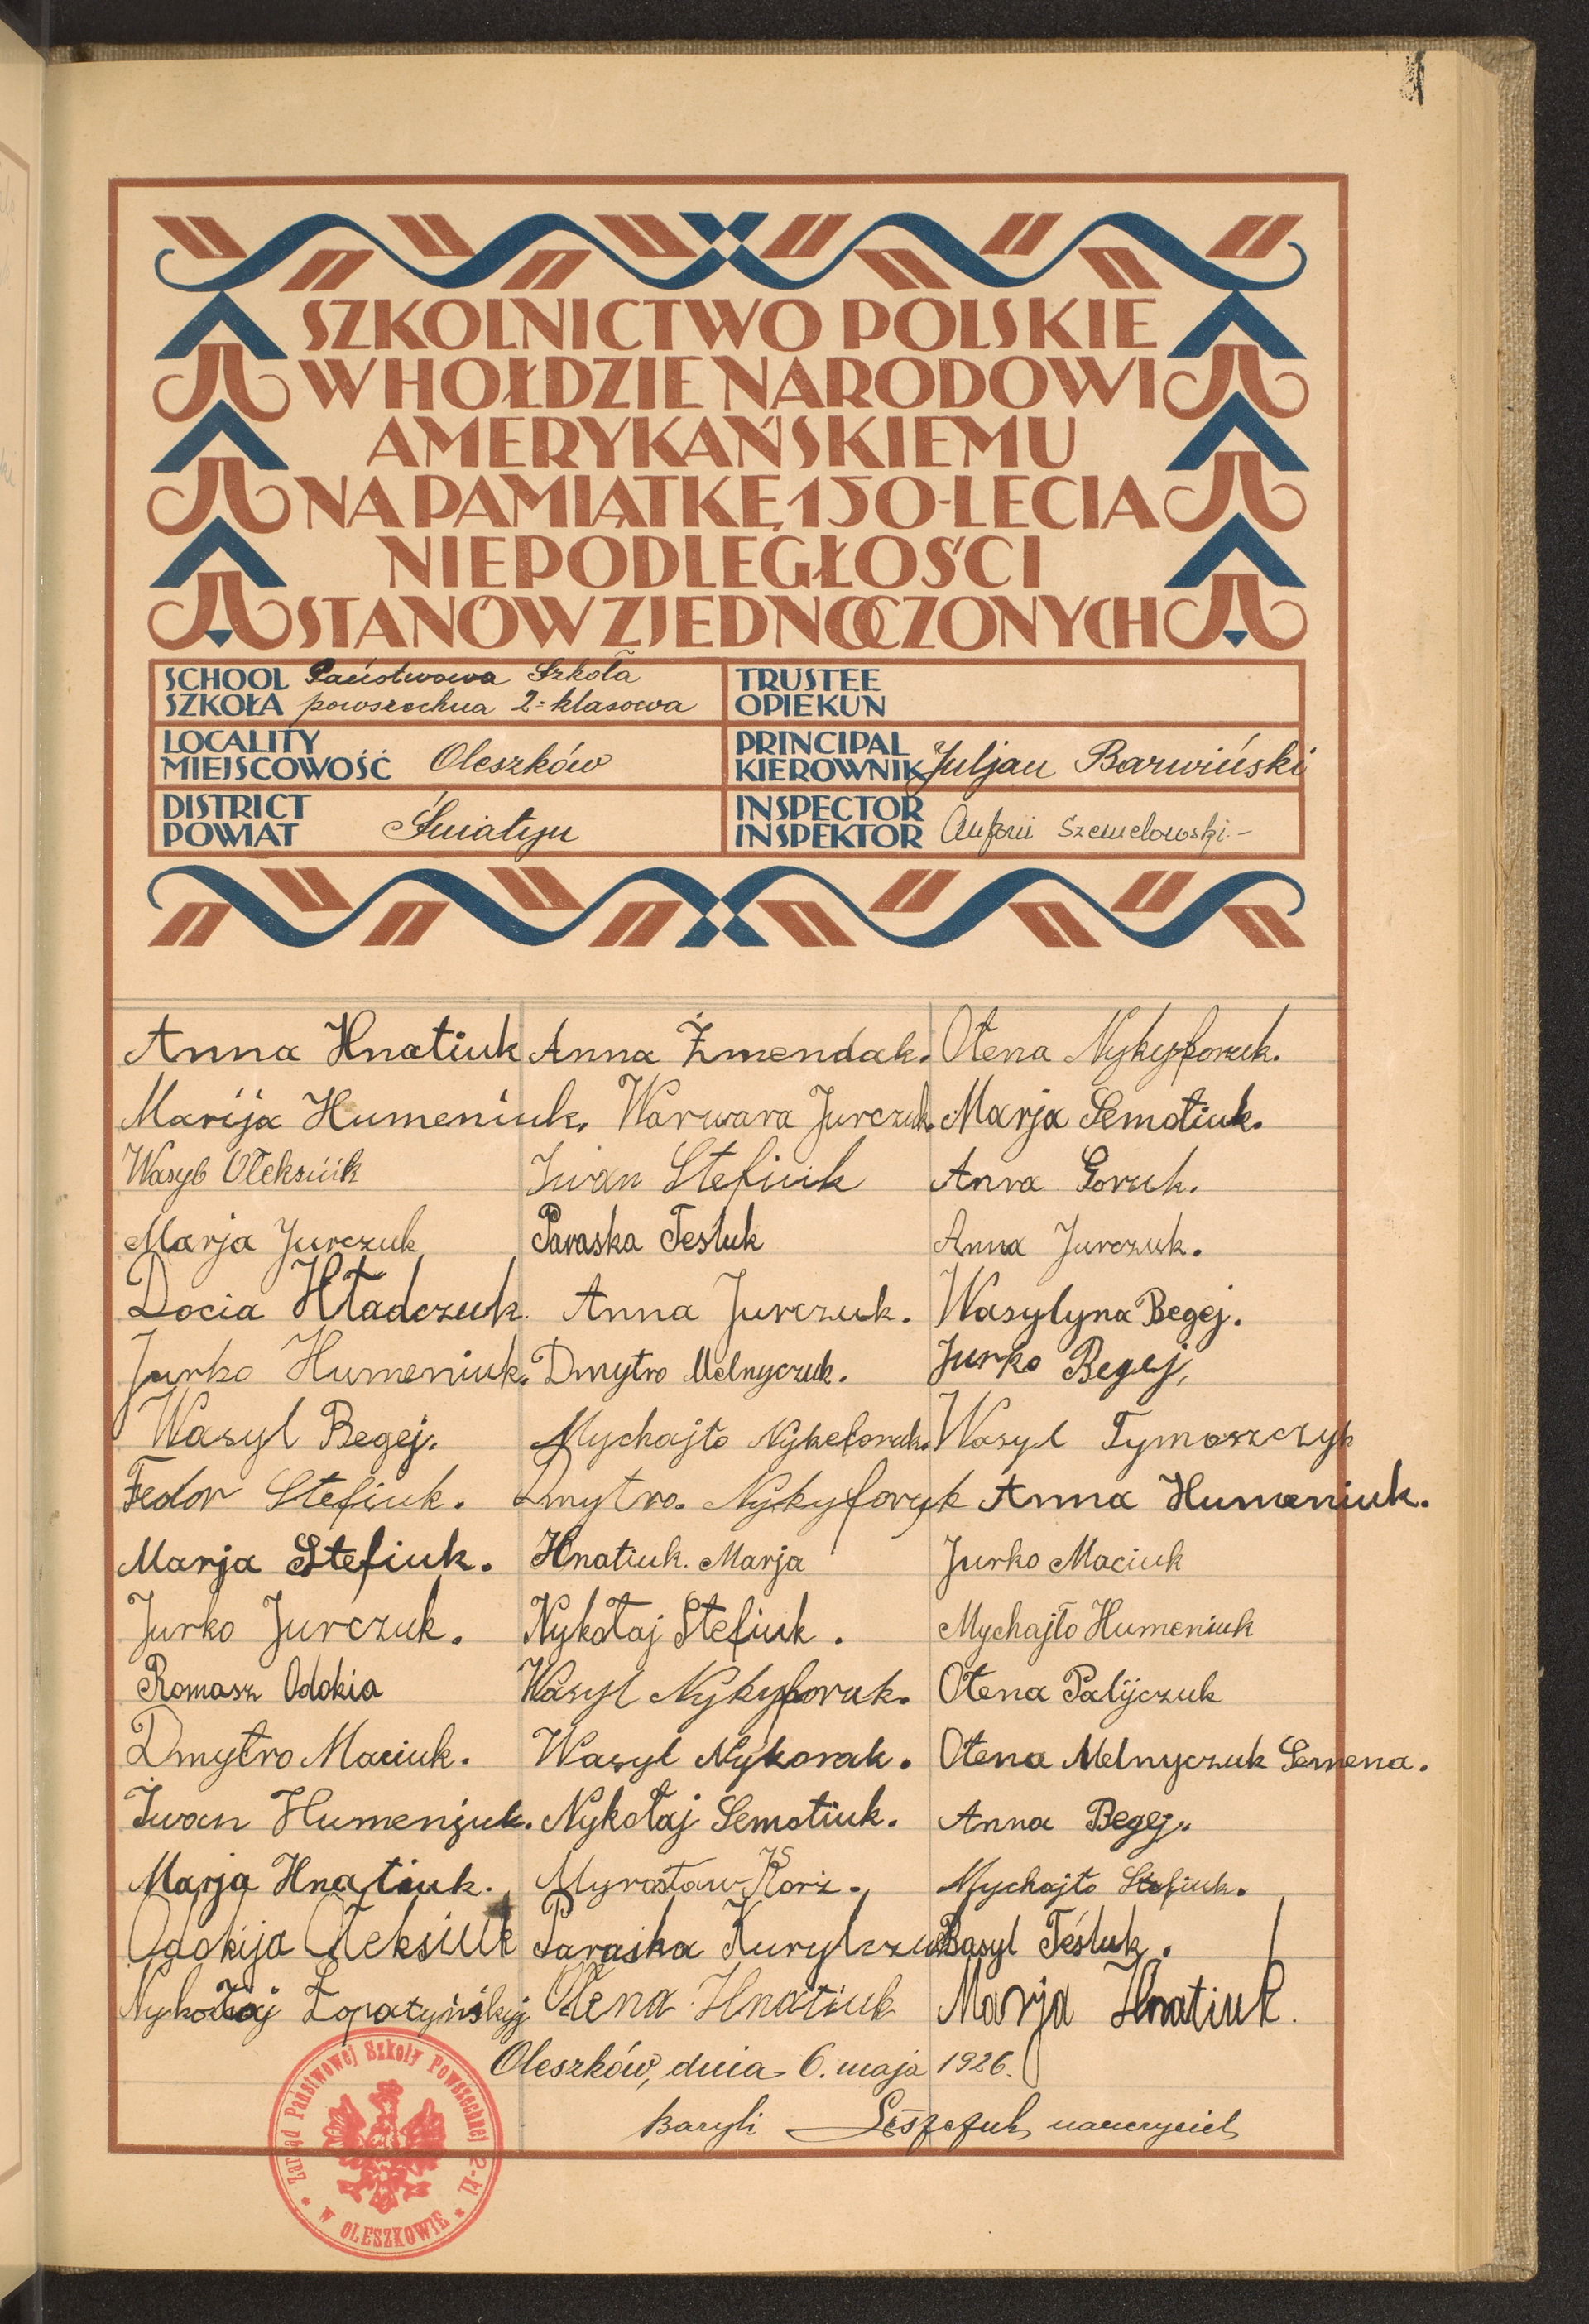 SZKOLNICTWO POLSKIE
W HOŁDZIE NARODOWI
AMERYKAŃSKIEMU
NA PAMIĄTKĘ 150-LECIA
NIEPODLEGŁOŚCI
STANÓW ZJEDNOCZONYCH
SCHOOL SZKOŁA Państwowa Szkoła
powszechna 2-klasowa
TRUSTEE OPIEKUN
LOCALITY MIEJSCOWOŚĆ Oleszków
PRINCIPAL KIEROWNIK Juljan Barwiński
DISTRICT POWIAT Śniatyn
INSPECTOR INSPEKTOR Antoni Szemelowski-
Anna Hnatiuk Anna Żmendak. Ołena Nykyforuk.
Marija Humeniuk. Warwara Jurczuk. Marja Semotiuk.
Wasyl Ołeksiuk Iwan Stefiuk Anna Goruk.
Marja Jurczuk Paraska Tesluk Anna Jurczuk.
Docia Hładczuk. Anna Jurczuk. Wasylyna Begej.
Jurko Humeniuk. Dmytro Melnyczuk. Jurko Begej,
Wasyl Begej. Mychajło Nykeforuk. Wasyl Tymoszczyk
Fedor Stefiuk. Dmytro. Nykyforyk Anna Humeniuk.
Marja Stefiuk. Hnatiuk. Marja Jurko Maciuk
Jurko Jurczuk. Nykołaj Stefiuk. Mychajło Humeniuk
Romasz Odokia Wasyl Nykyforuk. Ołena Palijczuk
Dmytro Maciuk. Wasyl Nykorak. Ołena Melnyczuk Semena.
Iwan Humenjuk. Nykołaj Semotiuk. Anna Begej.
Marja Hnatiuk. Myrosław Korż. Mychajło Stefiuk.
Odokija Ołeksiuk Paraska Kurylczuk Basyl Teśluk.
Nykołaj Łopatyńskyj Ołena Hnatiuk Marja Hnatiuk.
Oleszków, dnia 6. maja 1926.
Bazyli Leszczuk nauczyciel
Zarząd Państwowej Szkoły Powszechnej 2-kl
* W OLESZKOWIE *